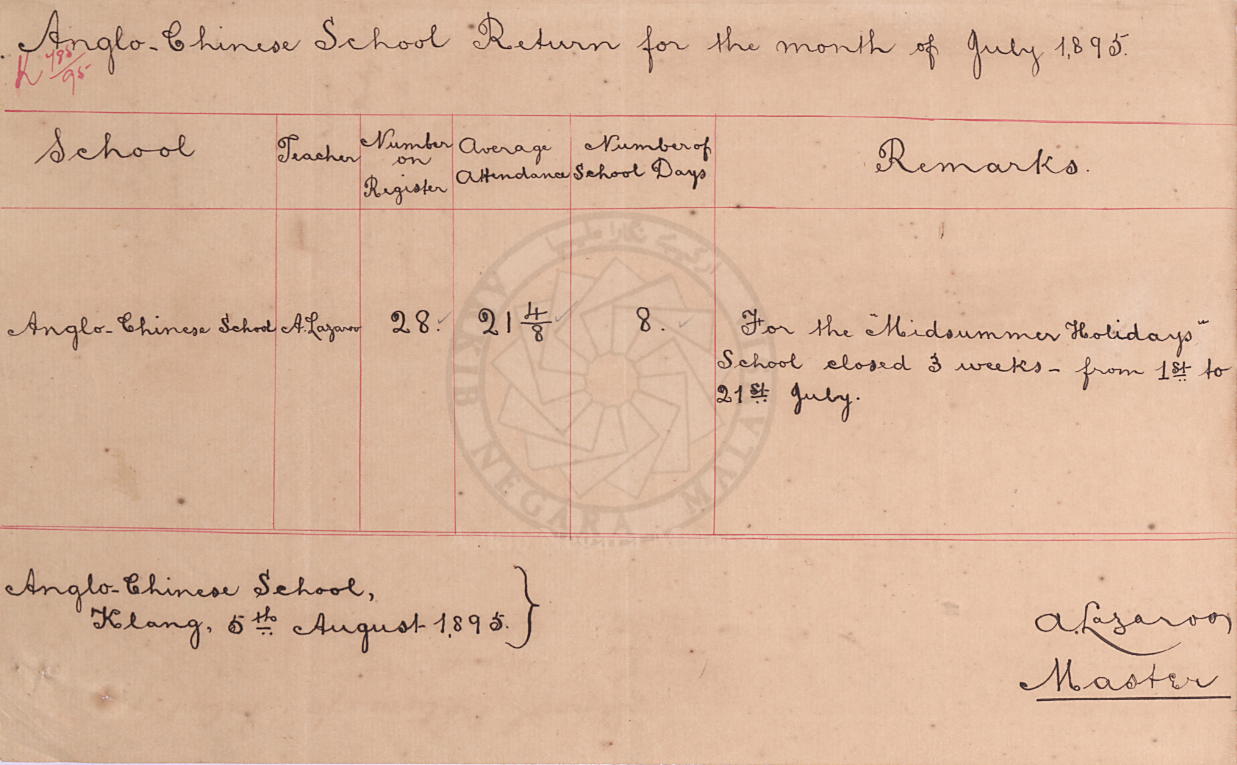 Anglo-Chinese School Return for the month of July 1,895.
K 495/95
School
Teacher
Number
on
Register
Average
Attendance
Number of
School Days
Remarks.
Anglo-Chinese School
A. Lazaroo
28.
21 4/8
8.
For the "Midsummer Holidays"
School closed 3 weeks - from 1st to
21st July.
Anglo-Chinese School,
Klang, 5th August 1,895.
A. Lazaroo
Master
ARKIB NEGARA MALAYSIA